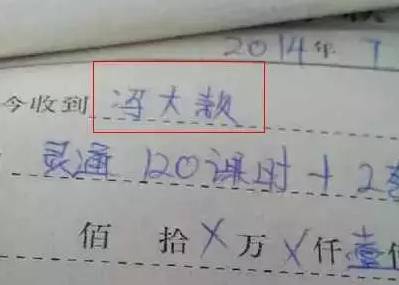 2014年 7
今收到 冯大款
灵通 120课时+2
佰 拾 X 万 X 仟 壹